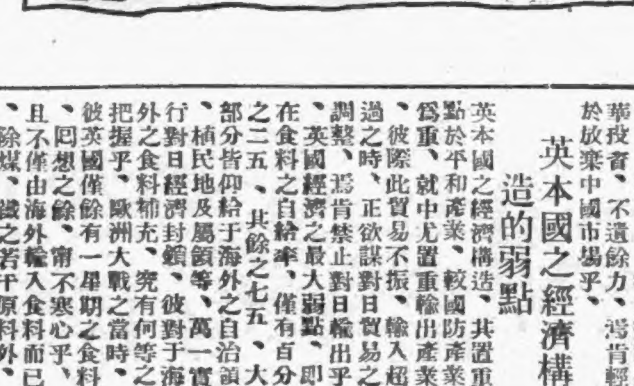 華投者、不遺餘力、焉肯輕
於放棄中國市場乎、
英本國之經濟構
造的弱點
英本國之經濟構造、其置重
點於平和產業、較國防產業
爲重、就中尤置重輸出產業
、彼際此貿易不振、輸入超
過之時、正欲謀對日貿易之
調整、焉肯禁止對日輸出乎
、英國經濟之最大弱點、即
在食料之自給率、僅有百分
之二五、其餘之七五、大
部分皆仰給于海外之自治領
、植民地及屬領等、萬一實
行對日經濟封鎖、彼對于海
外之食料補充、究有何等之
把握乎、歐洲大戰之當時、
彼英國僅餘有一星期之食料
、囘想之餘、甯不寒心乎、
且不僅由海外輸入食料而已
、除煤、鐵之若干原料外、